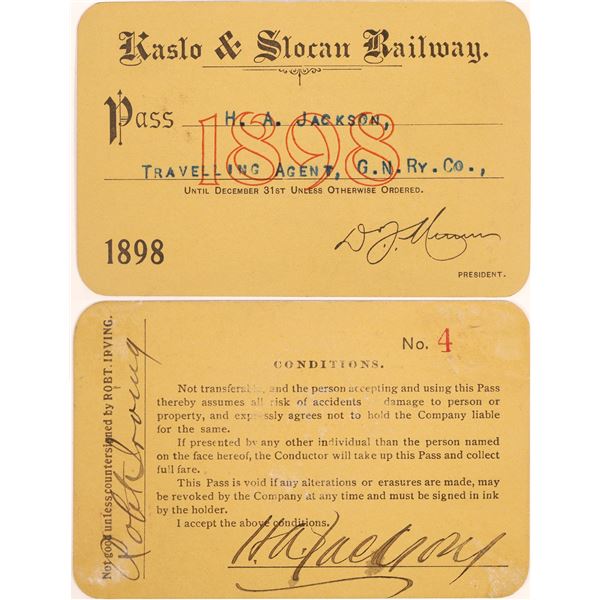 Kaslo & Slocan Railway.
Pass H. A. JACKSON,
1898
TRAVELLING AGENT, G.N.RY.CO.,
UNTIL DECEMBER 31ST UNLESS OTHERWISE ORDERED.
1898
PRESIDENT.
Not good unless countersigned by ROBT. IRVING.
Robt Irving
No. 4
CONDITIONS.
Not transferable, and the person accepting and using this Pass
thereby assumes all risk of accidents damage to person or
property, and expressly agrees not to hold the Company liable
for the same.
If presented by any other individual than the person named
on the face hereof, the Conductor will take up this Pass and collect
full fare.
This Pass is void if any alterations or erasures are made, may
be revoked by the Company at any time and must be signed in ink
by the holder.
I accept the above conditions.
H.A. Jackson